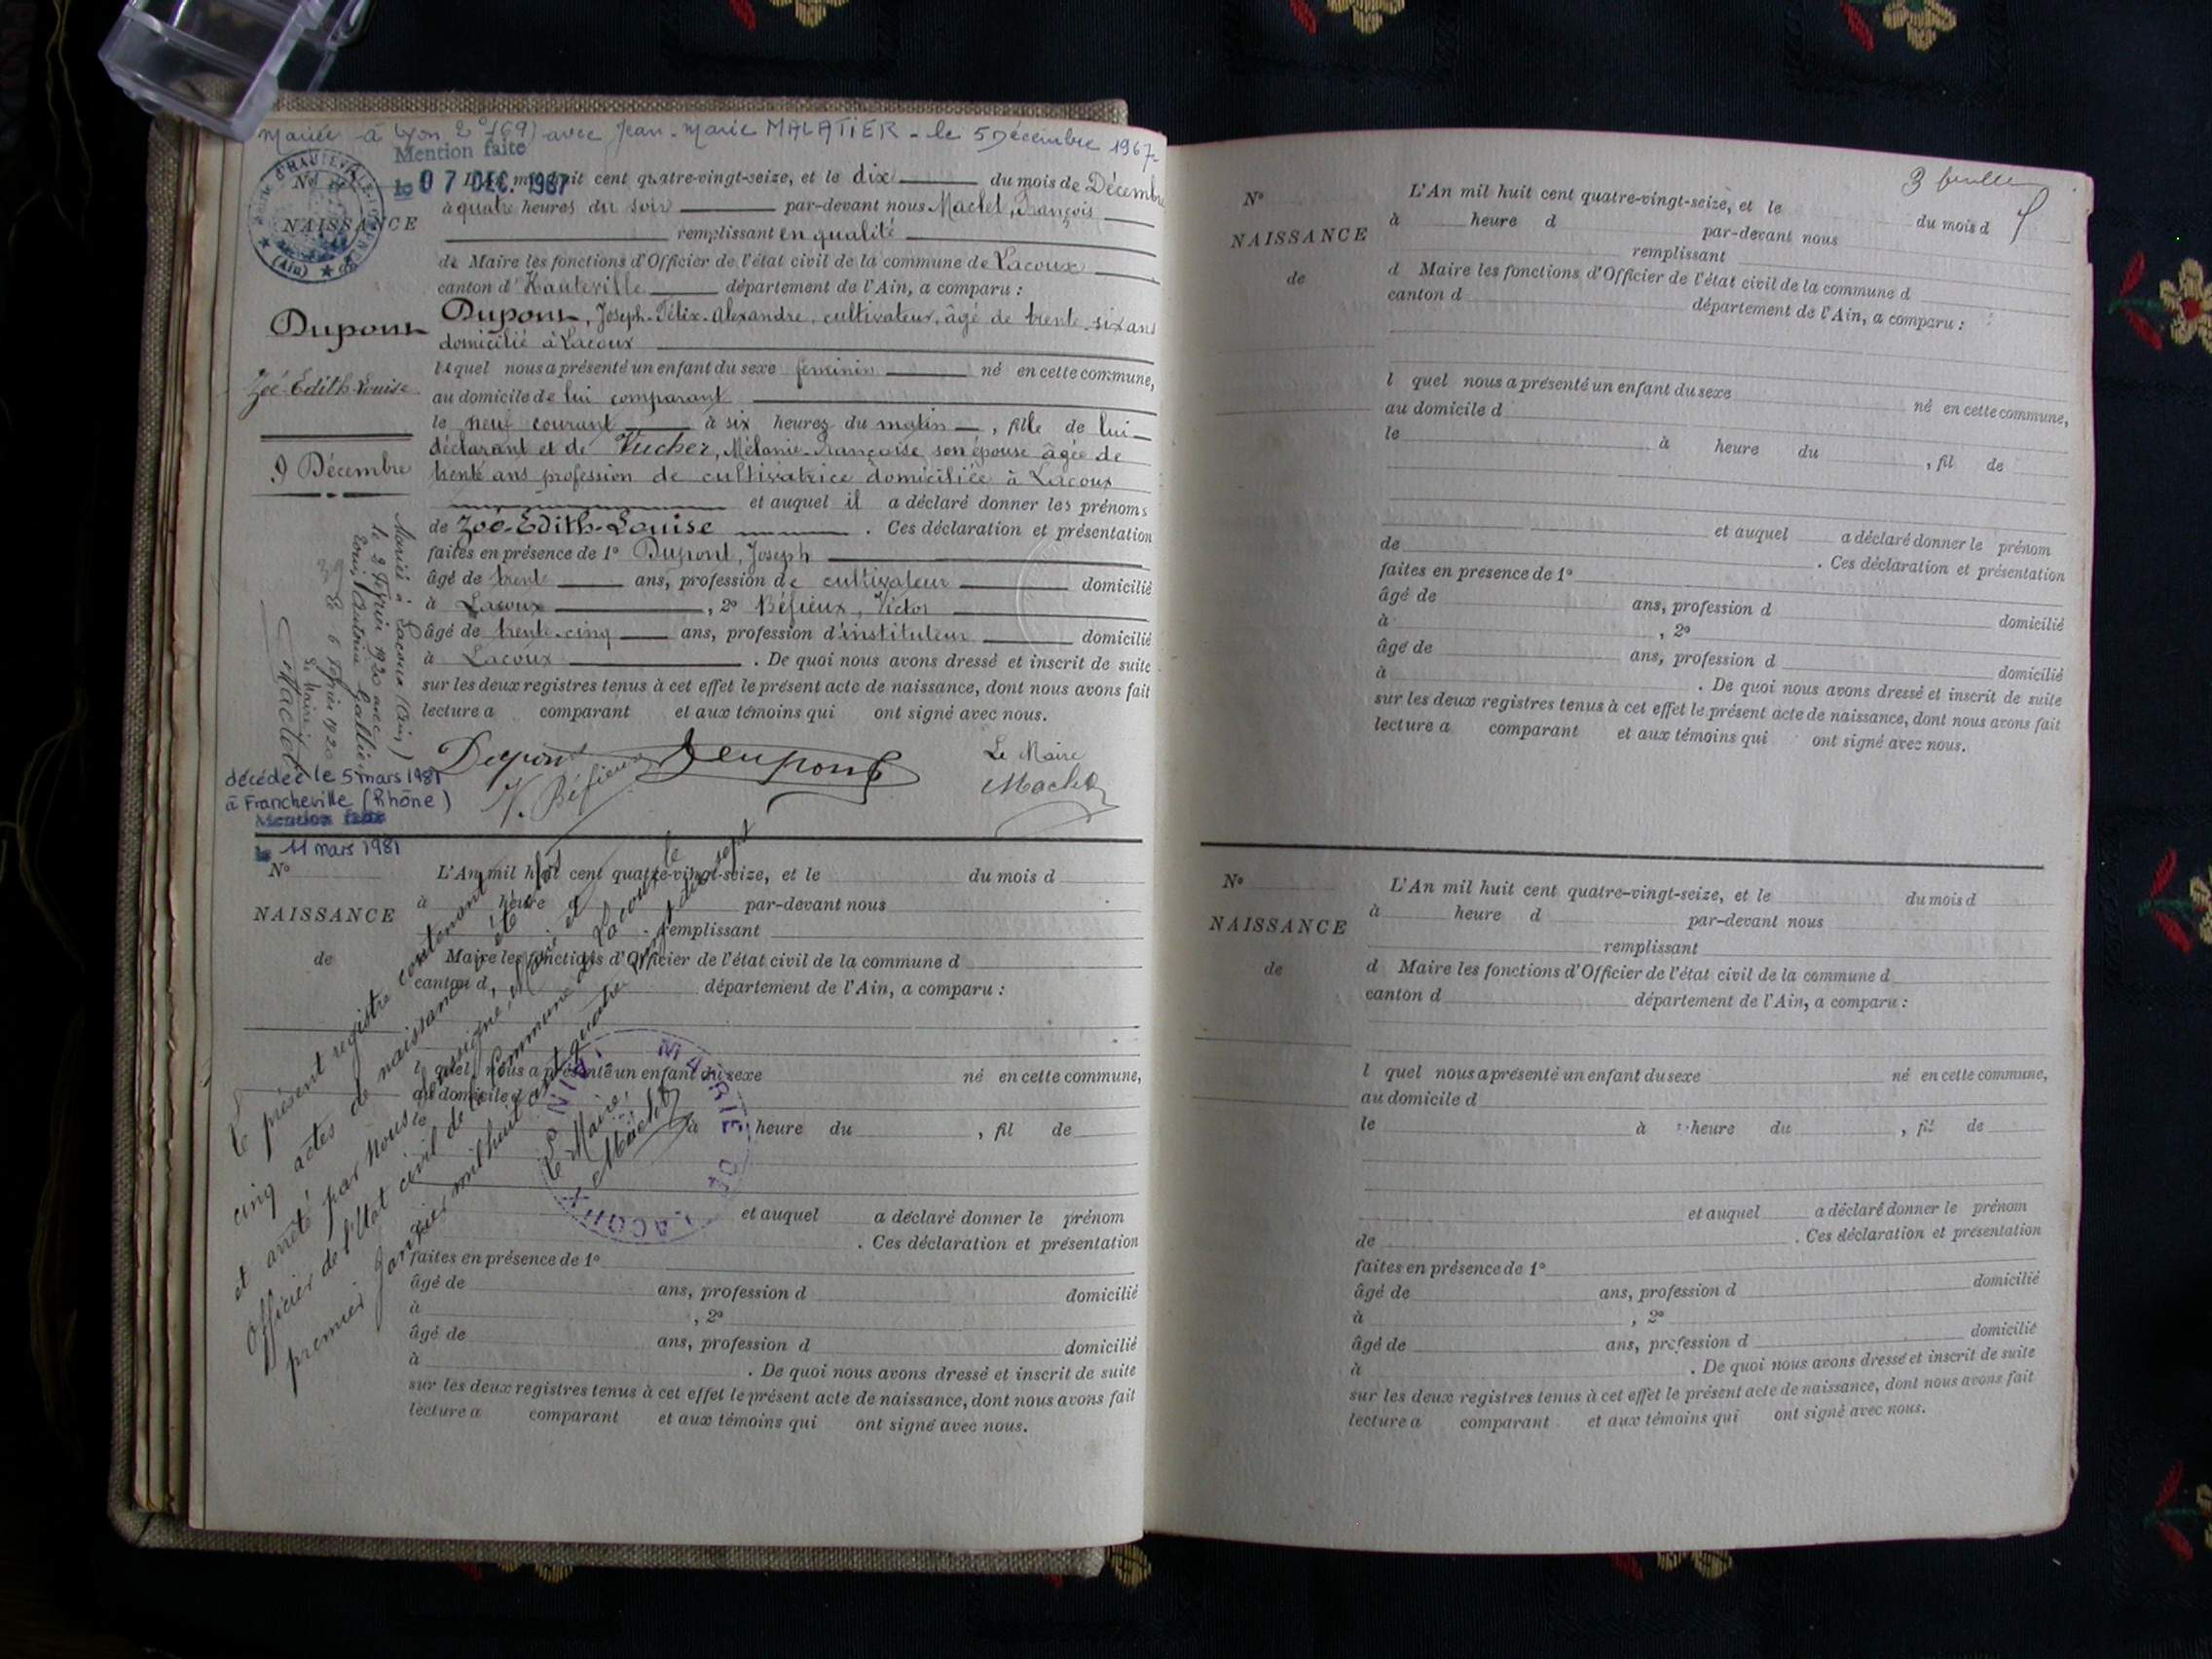 Mariée à Lyon 2° (69) avec Jean-Marie MALATIER - le 5 Décembre 1967
Mention faite
le 07 DEC. 1967
MAIRIE D'HAUTEVILLE
(Ain)
N°
NAISSANCE
Dupont
Zoé-Edith-Louise
9 Décembre
L'An mil huit cent quatre-vingt-seize, et le dix du mois de Décembre
à quatre heures du soir par-devant nous Maclet, François
remplissant en qualité
de Maire les fonctions d'Officier de l'état civil de la commune de Lacoux
canton d'Hauteville département de l'Ain, a comparu :
Dupont, Joseph-Félix-Alexandre, cultivateur, âgé de trente-six ans
domicilié à Lacoux
lequel nous a présenté un enfant du sexe féminin né en cette commune,
au domicile de lui comparant
le neuf courant à six heures du matin, fille de lui
déclarant et de Vucher, Mélanie-Françoise son épouse âgée de
trente ans profession de cultivatrice domiciliée à Lacoux
et auquel il a déclaré donner les prénoms
de Zoé-Edith-Louise. Ces déclaration et présentation
faites en présence de 1° Dupont, Joseph
âgé de trente ans, profession de cultivateur domicilié
à Lacoux, 2° Béfieux, Victor
âgé de trente-cinq ans, profession d'instituteur domicilié
à Lacoux. De quoi nous avons dressé et inscrit de suite
sur les deux registres tenus à cet effet le présent acte de naissance, dont nous avons fait
lecture a comparant et aux témoins qui ont signé avec nous.
Dupont V. Béfieux Dupont
Le Maire
Maclet
Mariée à Lacoux (Ain)
le 2 Février 1920 avec
Louis
Le 6 Février 1920
Le Maire
Maclet
décédée le 5 mars 1981
à Francheville (Rhône)
Mention faite
le 11 mars 1981
N°
NAISSANCE
de
L'An mil huit cent quatre-vingt-seize, et le du mois d
à heure d par-devant nous
remplissant
Maire les fonctions d'Officier de l'état civil de la commune d
canton d département de l'Ain, a comparu :
l quel nous a présenté un enfant du sexe né en cette commune,
au domicile d
à heure du , fil de
et auquel a déclaré donner le prénom
. Ces déclaration et présentation
faites en présence de 1°
âgé de ans, profession d domicilié
à , 2°
âgé de ans, profession d domicilié
à . De quoi nous avons dressé et inscrit de suite
sur les deux registres tenus à cet effet le présent acte de naissance, dont nous avons fait
lecture a comparant et aux témoins qui ont signé avec nous.
Le présent registre contenant
cinq actes de naissance, a été clos
et arrêté par Nous soussigné, Maire et
Officier de l'Etat civil de la Commune de Lacoux le
premier Janvier mil huit cent quatre-vingt-dix-sept
Le Maire,
Maclet
MAIRIE DE LACOUX (AIN)
3 feuille
N°
NAISSANCE
de
L'An mil huit cent quatre-vingt-seize, et le du mois d
à heure d par-devant nous
remplissant
d Maire les fonctions d'Officier de l'état civil de la commune d
canton d département de l'Ain, a comparu :
l quel nous a présenté un enfant du sexe né en cette commune,
au domicile d
le à heure du , fil de
et auquel a déclaré donner le prénom
de . Ces déclaration et présentation
faites en présence de 1°
âgé de ans, profession d domicilié
à , 2°
âgé de ans, profession d domicilié
à . De quoi nous avons dressé et inscrit de suite
sur les deux registres tenus à cet effet le présent acte de naissance, dont nous avons fait
lecture a comparant et aux témoins qui ont signé avec nous.
N°
NAISSANCE
de
L'An mil huit cent quatre-vingt-seize, et le du mois d
à heure d par-devant nous
remplissant
d Maire les fonctions d'Officier de l'état civil de la commune d
canton d département de l'Ain, a comparu :
l quel nous a présenté un enfant du sexe né en cette commune,
au domicile d
le à heure du , fil de
et auquel a déclaré donner le prénom
de . Ces déclaration et présentation
faites en présence de 1°
âgé de ans, profession d domicilié
à , 2°
âgé de ans, profession d domicilié
à . De quoi nous avons dressé et inscrit de suite
sur les deux registres tenus à cet effet le présent acte de naissance, dont nous avons fait
lecture a comparant et aux témoins qui ont signé avec nous.